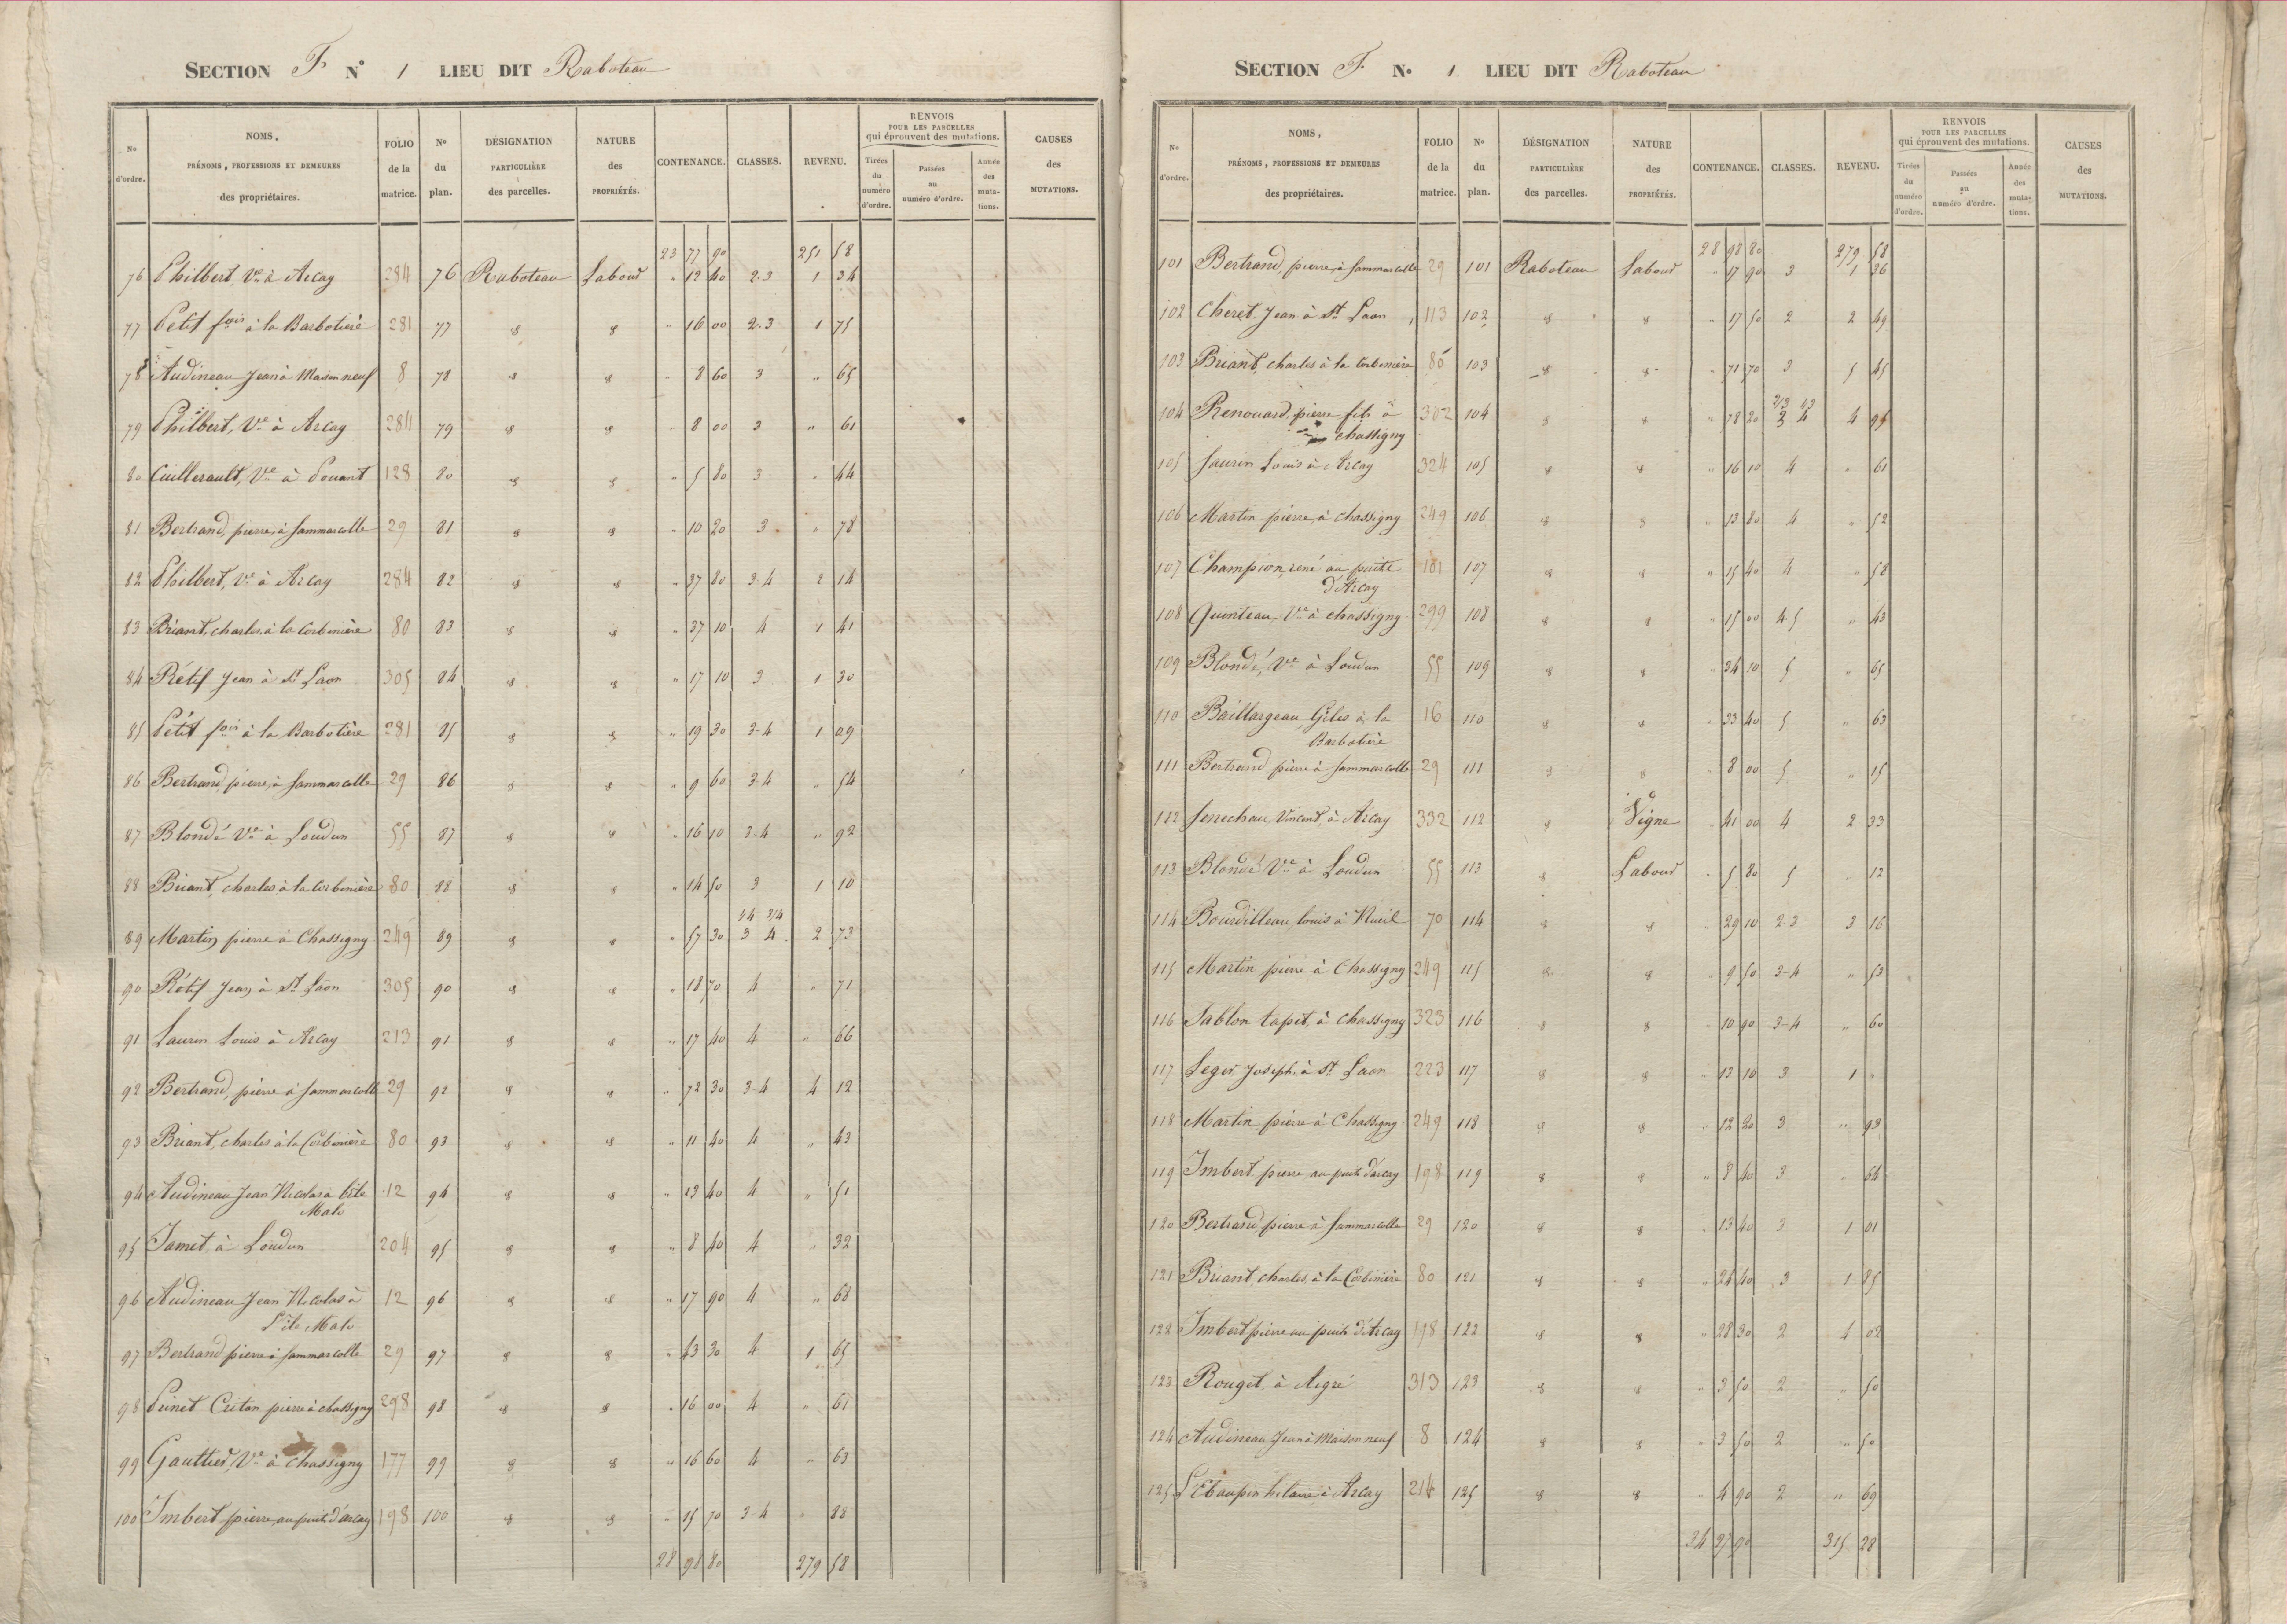 SECTION F N° 1 LIEU DIT Raboteau
N° d'ordre. NOMS, PRÉNOMS, PROFESSIONS ET DEMEURES des propriétaires. FOLIO de la matrice. N° du plan. DÉSIGNATION PARTICULIÈRE des parcelles. NATURE des PROPRIÉTÉS. CONTENANCE. CLASSES. REVENU. RENVOIS POUR LES PARCELLES qui éprouvent des mutations. Tirées du numéro d'ordre. Passées au numéro d'ordre. Année des mutations. CAUSES des MUTATIONS.
23 77 90 251 58
76 Philbert, Ve à Arcay 284 76 Raboteau Labour " 12 40 2-3 1 34
77 Petit fois à la Barbotière 281 77 " " " 16 00 2-3 1 75
78 Audineau Jean à Maison neuf 8 78 " " " 8 60 3 " 65
79 Philbert, Ve à Arcay 284 79 " " " 8 00 3 " 61
80 Cuillerault, Ve à Pouant 128 80 " " " 5 80 3 " 44
81 Bertrand, pierre, à Sammarcolle 29 81 " " " 10 20 3 " 78
82 Philbert, Ve à Arcay 284 82 " " " 37 80 3-4 2 14
83 Briant, charles, à la Corbinière 80 83 " " " 37 10 4 1 41
84 Rétif Jean à St Laon 305 84 " " " 17 10 3 1 30
85 Petit fois à la Barbotière 281 85 " " " 19 30 3-4 1 09
86 Bertrand, pierre, à Sammarcolle 29 86 " " " 9 60 3-4 " 54
87 Blondé Ve à Loudun 55 87 " " " 16 10 3-4 " 92
88 Briant, charles à la Corbinière 80 88 " " " 14 50 3 1 10
1/4 3/4
89 Martin pierre à Chassigny 249 89 " " " 57 30 3 4 2 73
90 Rétif Jean à St Laon 305 90 " " " 18 70 4 " 71
91 Laurin Louis à Arcay 213 91 " " " 17 40 4 " 66
92 Bertrand, pierre à Sammarcolle 29 92 " " " 72 30 3-4 4 12
93 Briant, charles à la Corbinière 80 93 " " " 11 40 4 " 43
94 Audineau Jean Nicolas à
Malo 12 94 " " " 13 40 4 " 51
95 Jamet à Loudun 204 95 " " " 8 40 4 " 32
96 Audineau Jean Nicolas à 12 96 " " " 17 90 4 " 68
L'ile Malo
97 Bertrand pierre à Sammarcolle 29 97 " " " 43 30 4 1 65
98 Pinet pierre à chassigny 298 98 " " " 16 00 4 " 61
99 Gauttier, Ve à Chassigny 177 99 " " " 16 60 4 " 63
100 Imbert pierre, au puits d'arcay 198 100 " " " 15 70 3-4 " 88
28 98 80 279 58
SECTION F. N° 1 LIEU DIT Raboteau
N° d'ordre. NOMS, PRÉNOMS, PROFESSIONS ET DEMEURES des propriétaires. FOLIO de la matrice. N° du plan. DÉSIGNATION PARTICULIÈRE des parcelles. NATURE des PROPRIÉTÉS. CONTENANCE. CLASSES. REVENU. RENVOIS POUR LES PARCELLES qui éprouvent des mutations. Tirées du numéro d'ordre. Passées au numéro d'ordre. Année des mutations. CAUSES des MUTATIONS.
28 98 80 279 58
101 Bertrand, pierre, à Sammarcolle 29 101 Raboteau Labour " 17 90 3 1 36
102 Cheret Jean à St Laon 113 102 " " " 17 50 2 2 49
103 Briant, charles à la Corbinière 80 103 " " " 71 70 3 5 45
2/3 1/3
104 Renouard, pierre fils à 302 104 " " " 78 20 3 4 4 95
chassigny
105 Saurin Louis à Arcay 324 105 " " " 16 10 4 " 61
106 Martin pierre, à chassigny 249 106 " " " 13 80 4 " 52
107 Champion, réné au puits 101 107 " " " 15 40 4 " 58
d'Arcay
108 Quinteau, Ve à chassigny 299 108 " " " 15 00 4-5 " 43
109 Blondé, Ve à Loudun 55 109 " " " 34 10 5 " 65
110 Baillargeau Giles à la 16 110 " " " 33 40 5 " 63
Barbotière
111 Bertrand pierre à Sammarcolle 29 111 " " " 8 00 5 " 15
112 Senechau, Vincent, à Arcay 332 112 " Vigne " 41 00 4 2 33
113 Blondé Ve à Loudun 55 113 " Labour " 5 80 5 " 12
114 Bourdilleau louis à Nueil 70 114 " " " 29 10 2-3 3 16
115 Martin pierre à Chassigny 249 115 " " " 9 50 3-4 " 53
116 Sablon tapit, à Chassigny 323 116 " " " 10 90 3-4 " 60
117 Leger Joseph à St Laon 223 117 " " " 13 10 3 1 "
118 Martin pierre à Chassigny 249 118 " " " 12 20 3 " 93
119 Imbert pierre au puits d'arcay 198 119 " " " 8 40 3 " 64
120 Bertrand pierre à Sammarcolle 29 120 " " " 13 40 3 1 01
121 Briant, charles, à la Corbinière 80 121 " " " 24 40 3 1 85
122 Imbert pierre au puits d'Arcay 198 122 " " " 28 30 2 4 02
123 Rouget à Aigré 313 123 " " " 3 50 2 " 50
124 Audineau Jean à Maison neuf 8 124 " " " 3 50 2 " 50
125 L'Etaupin hilaire à Arcay 214 125 " " " 4 90 2 " 69
34 27 90 315 28